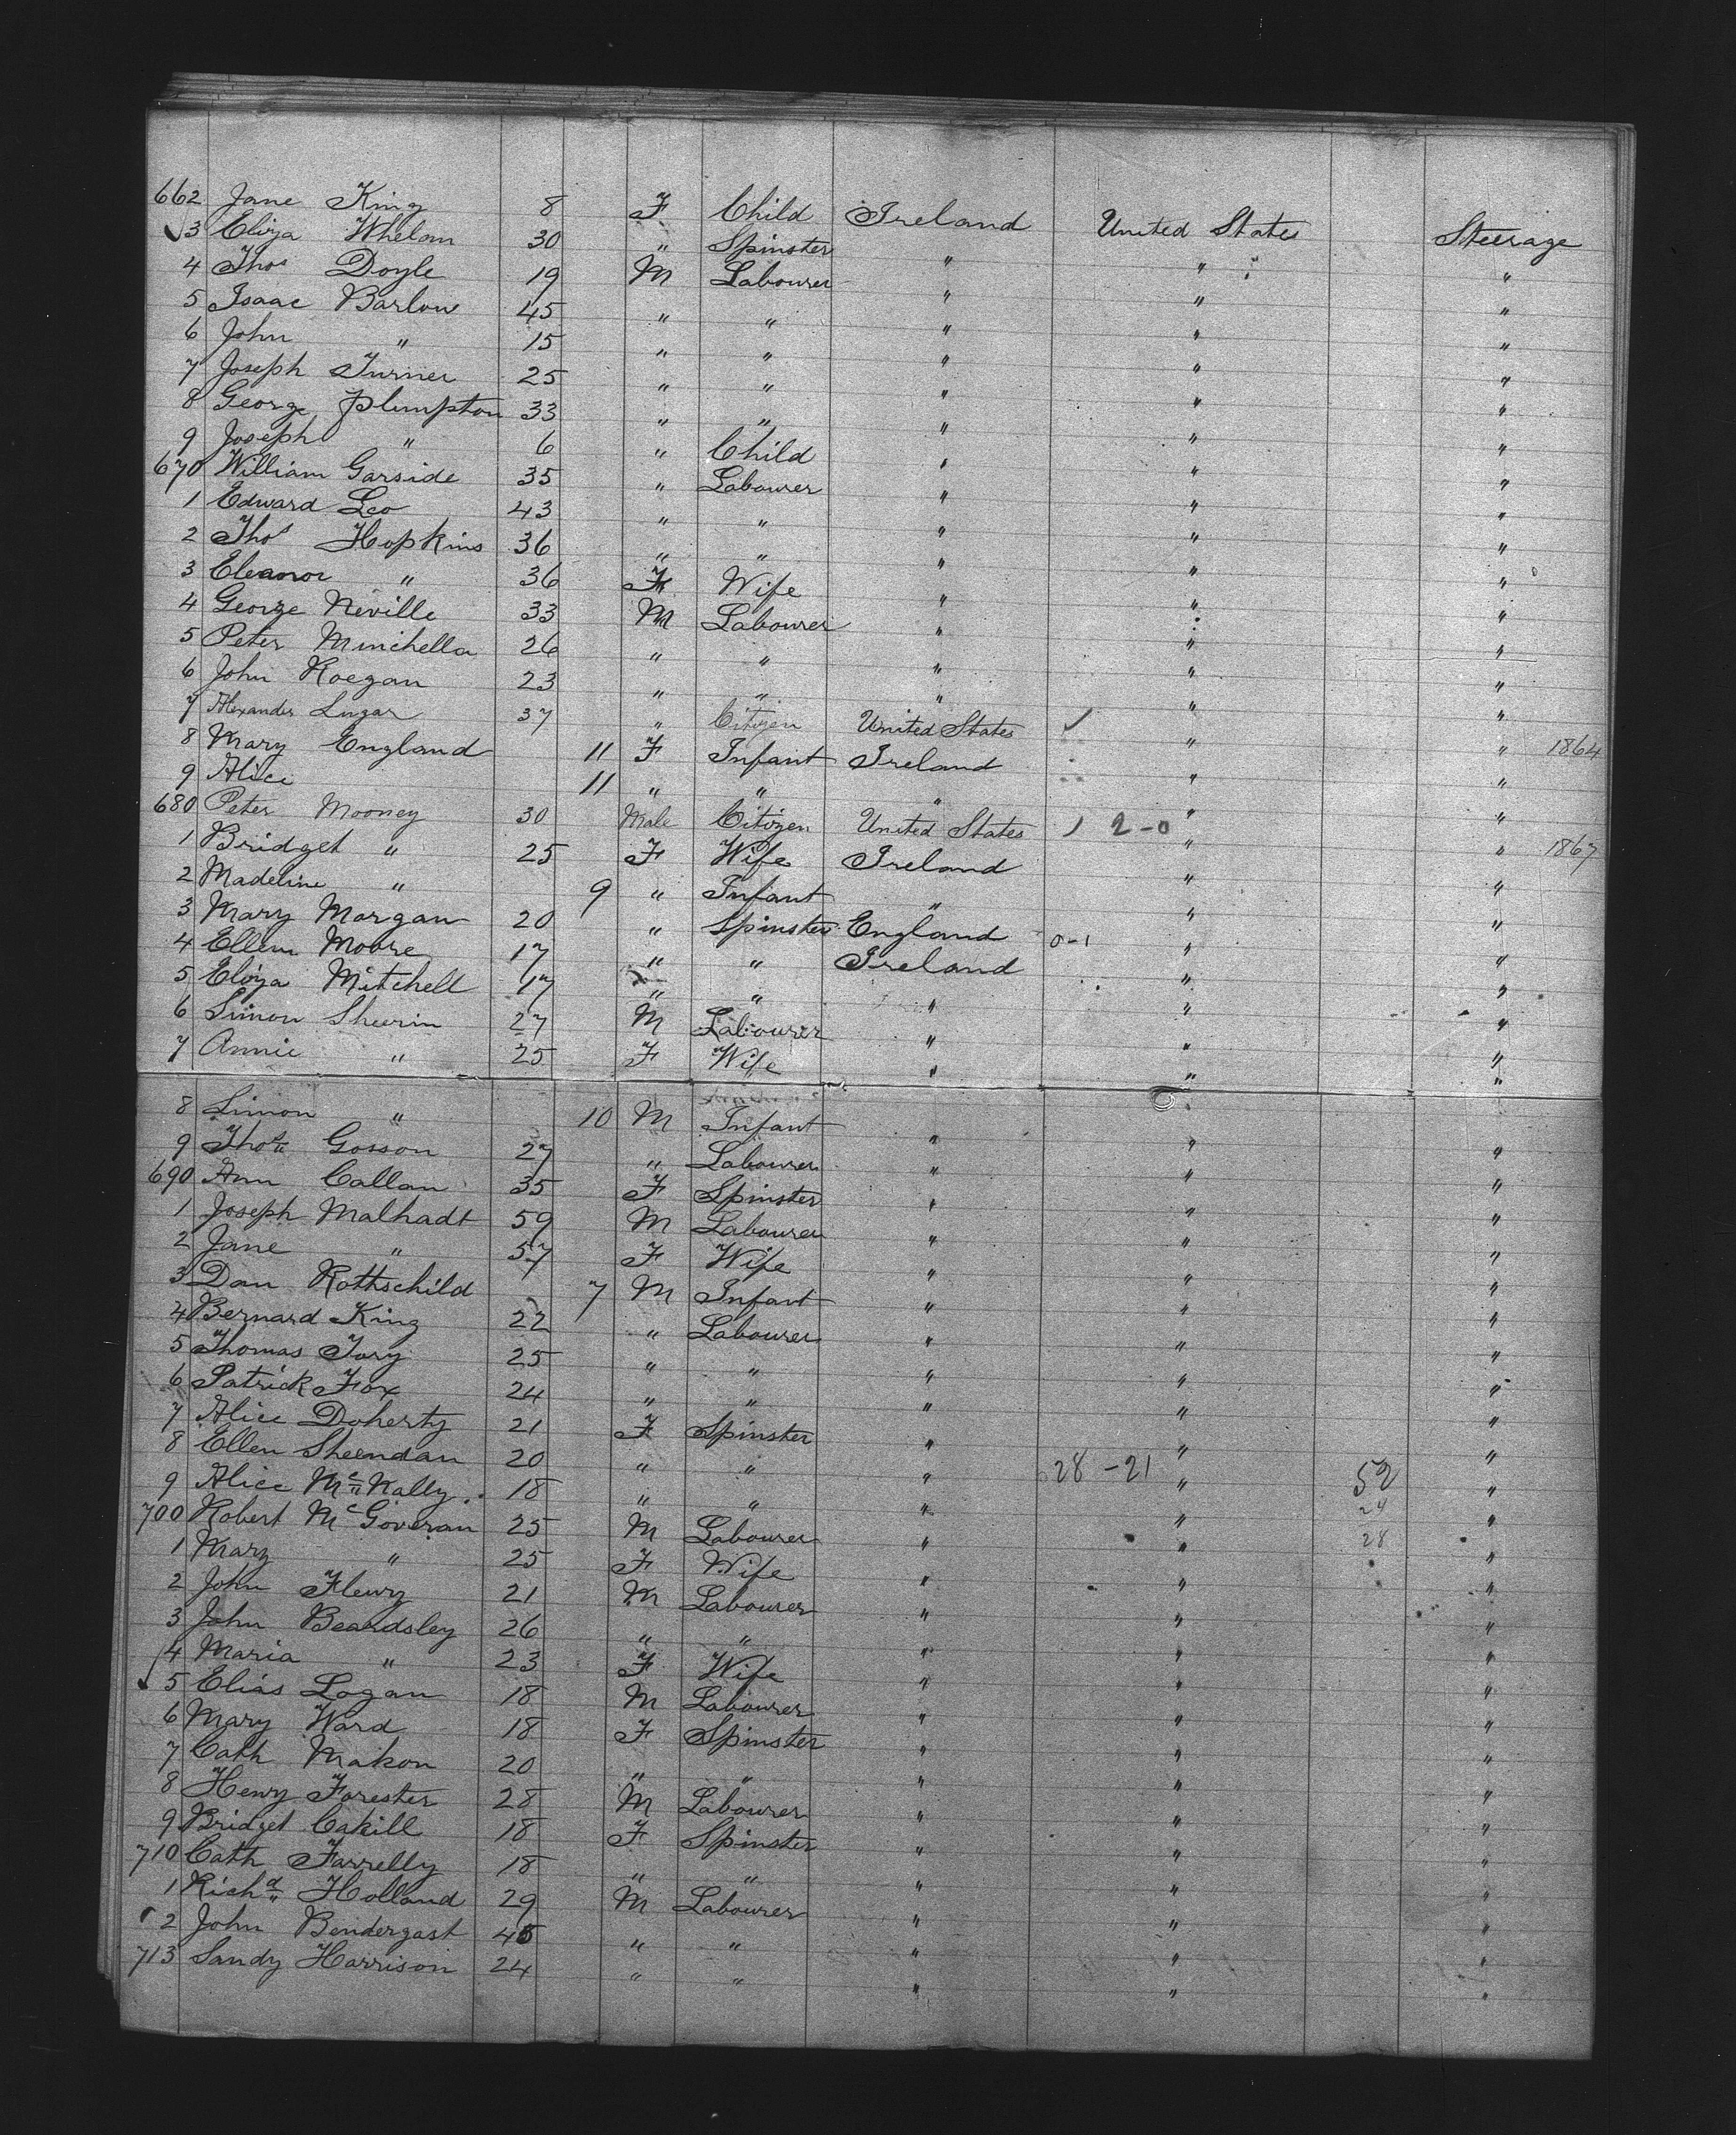 662 Jane King 8 F Child Ireland United States Steerage
3 Eliza Whelan 30 " Spinster " " "
4 Thos Doyle 19 M Labourer " " "
5 Isaac Barlow 45 " " " " "
6 John " 15 " " " " "
7 Joseph Turner 25 " " " " "
8 George Plimpton 33 " " " " "
9 Joseph " 6 " Child " " "
670 William Garside 35 " Labourer " " "
1 Edward Leo 43 " " " " "
2 Thos Hopkins 36 " " " " "
3 Eleanor " 36 F Wife " " "
4 George Neville 33 M Labourer " " "
5 Peter Minchella 26 " " " " "
6 John Koegan 23 " " " " "
7 Alexander Lugar 37 " Citizen United States " " 1864
8 Mary England 11 F Infant Ireland " "
9 Alice 11 " " " " "
680 Peter Mooney 30 Male Citizen United States 2-0 " " 1867
1 Bridget " 25 F Wife Ireland " "
2 Madeline " 9 " Infant " " "
3 Mary Morgan 20 " Spinster England 0-1 " "
4 Ellen Moore 17 " " Ireland " "
5 Eliza Mitchell 17 " " " " "
6 Simon Sheerin 27 M Labourer " " "
7 Annie " 25 F Wife " " "
8 Simon " 10 M Infant " " "
9 Thos Gosson 27 " Labourer " " "
690 Ann Callan 35 F Spinster " " "
1 Joseph Malhadt 59 M Labourer " " "
2 Jane " 57 F Wife " " "
3 Dan Rothschild 7 M Infant " " "
4 Bernard King 22 " Labourer " " "
5 Thomas Tory 25 " " " " "
6 Patrick Fox 24 " " " " "
7 Alice Doherty 21 F Spinster " " "
8 Ellen Sheendan 20 " " " 28-21 " 52 "
9 Alice McNally 18 " " " " 24 "
700 Robert McGoveran 25 M Labourer " " 28 "
1 Mary " 25 F Wife " " "
2 John Fleury 21 M Labourer " " "
3 John Beardsley 26 " " " " "
4 Maria " 23 F Wife " " "
5 Elias Logan 18 M Labourer " " "
6 Mary Ward 18 F Spinster " " "
7 Cath Makon 20 " " " " "
8 Henry Forester 28 M Labourer " " "
9 Bridget Cahill 18 F Spinster " " "
710 Cath Farrelly 18 " " " " "
1 Richd Holland 29 M Labourer " " "
2 John Bendergast 45 " " " " "
713 Sandy Harrison 24 " " " " "